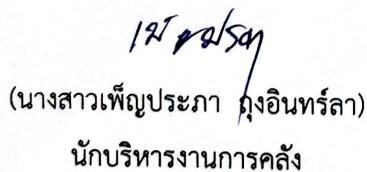 (นางสาวเพ็ญประภา ถุงอินทร์ลา)
นักบริหารงานการคลัง